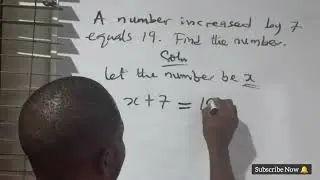 A number increased by 7
equals 19. Find the number.
Soln
let the number be x
x + 7 = 19
Subscribe Now 🔔